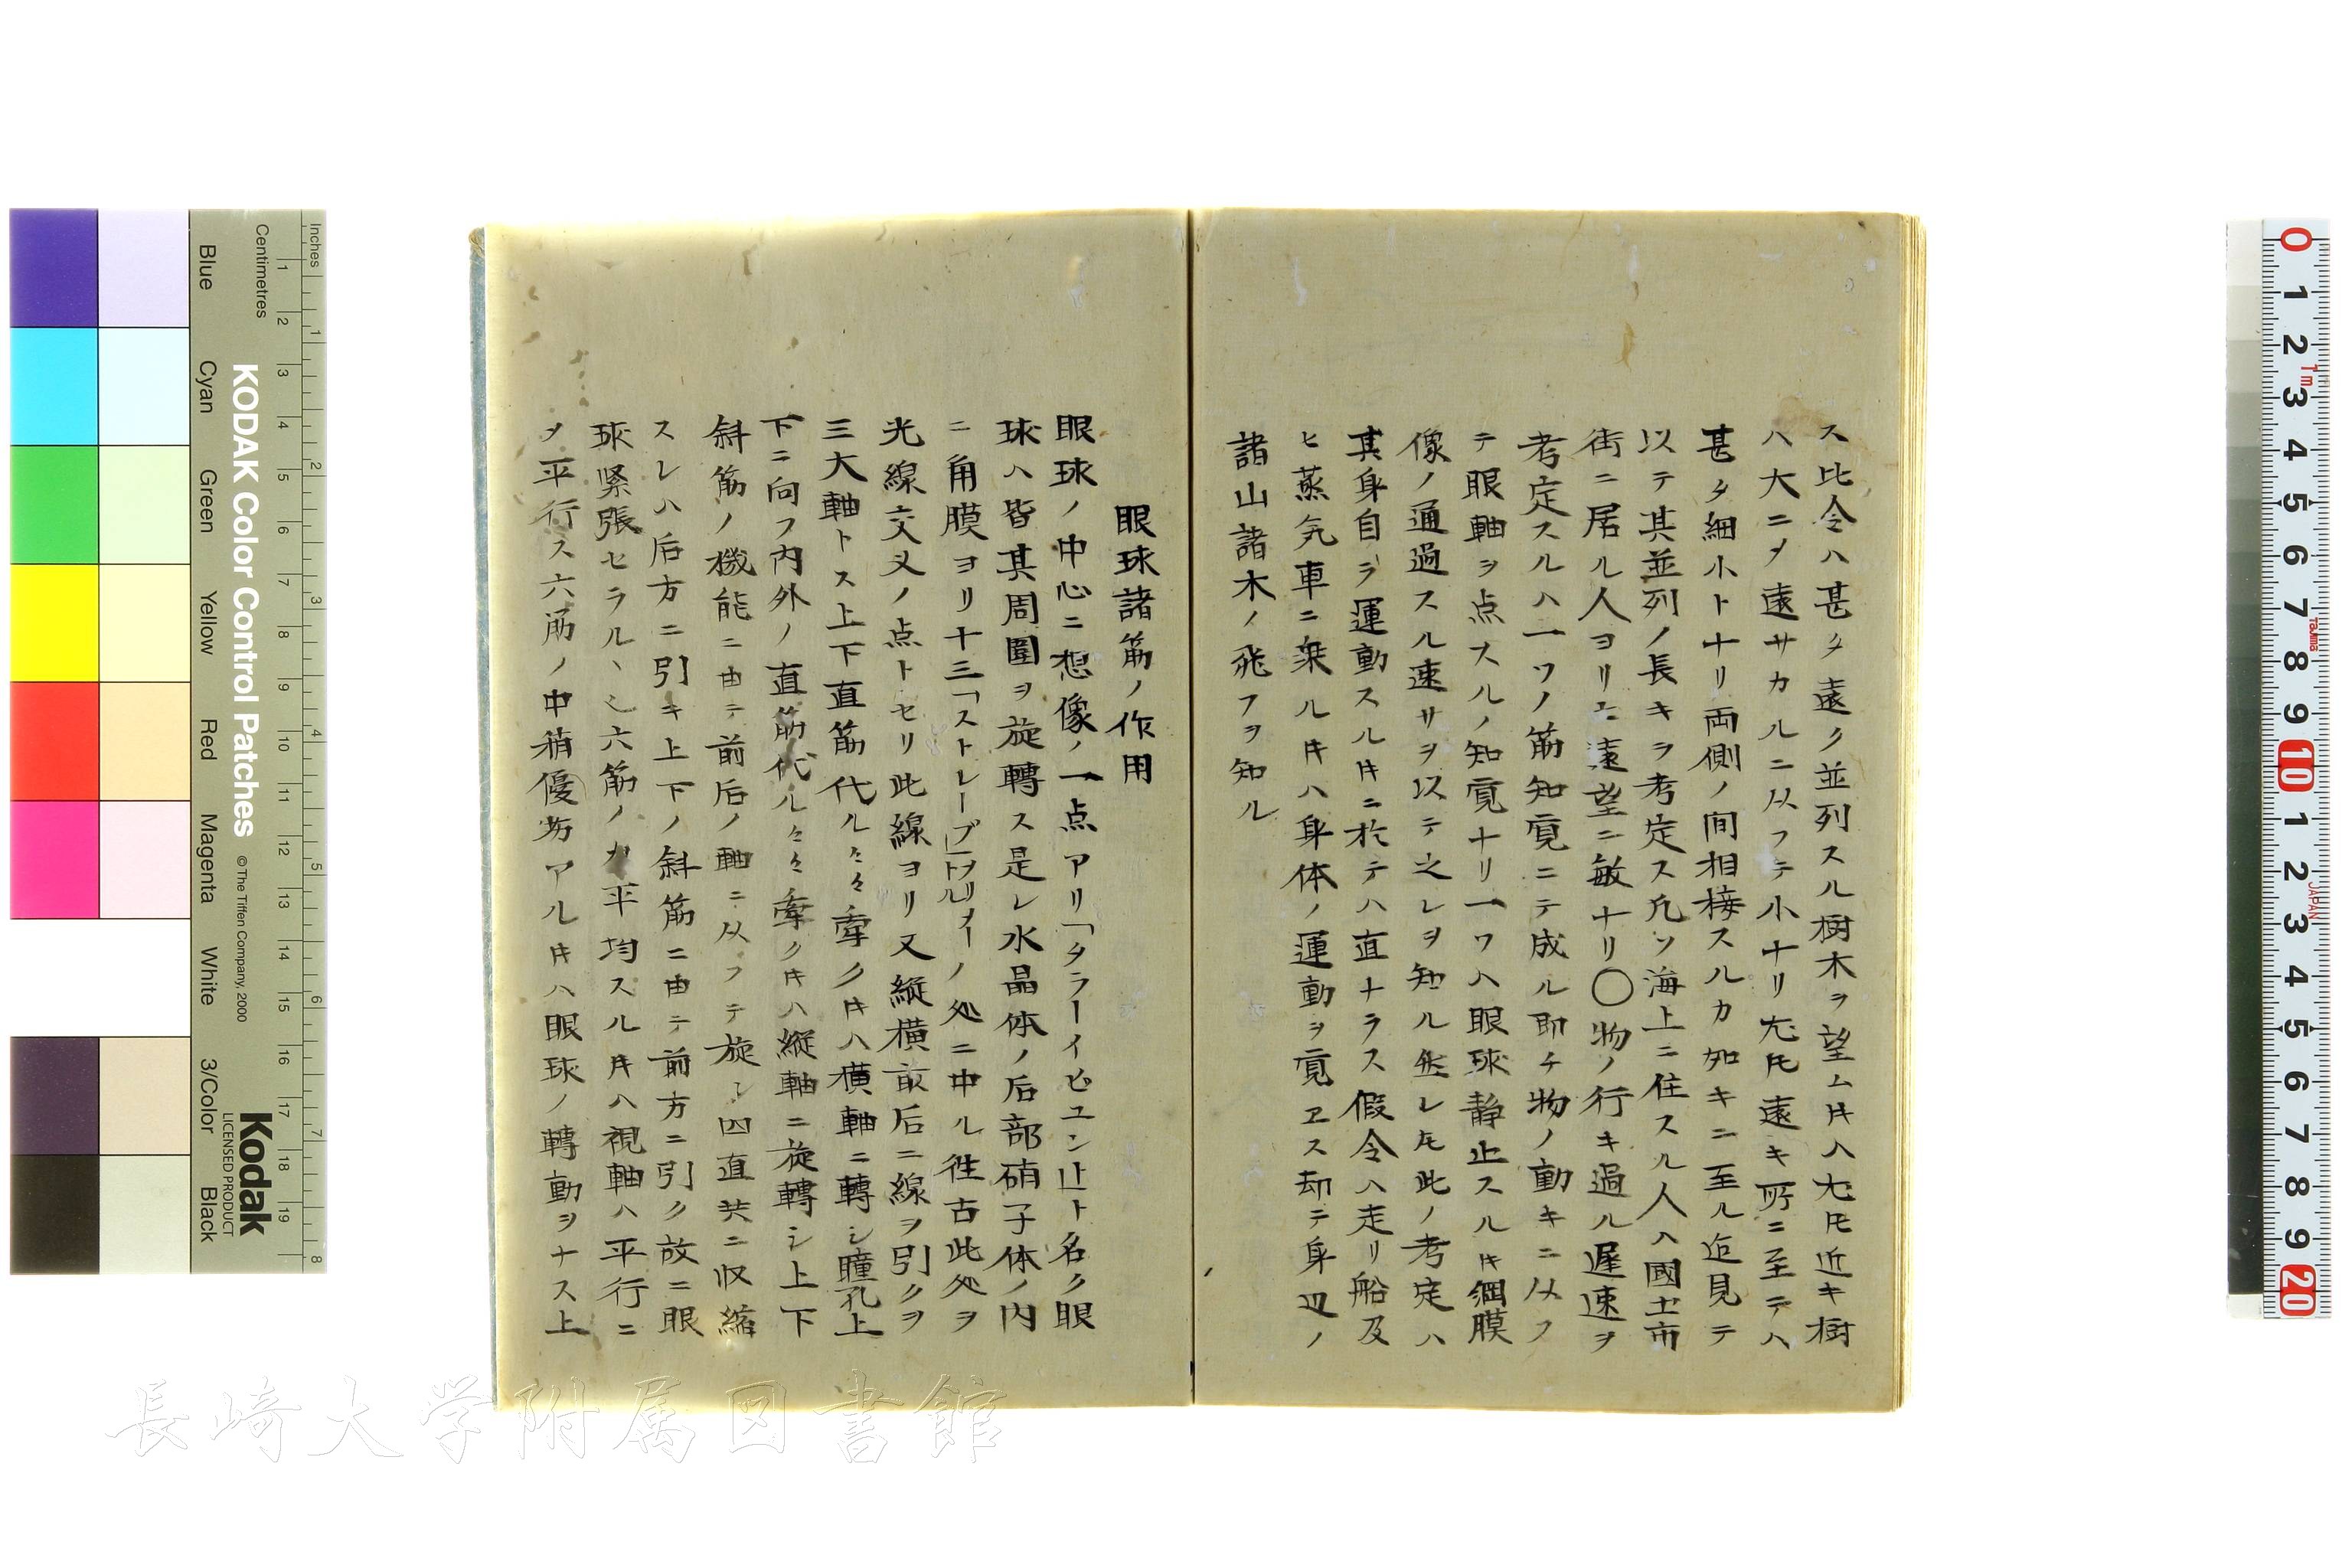 ス比令ハ甚タ遠ク並列スル樹木ヲ望ムキハ尢モ近キ樹
ハ大ニメ遠サカルニ从フテ小ナリ尢モ遠キ所ニ至テハ
甚タ細小トナリ両側ノ間相接スルカ如キニ至ル近見テ
以テ其並列ノ長キヲ考定ス凡ソ海上ニ住スル人ハ國土市
街ニ居ル人ヨリモ遠望ニ敏ナリ〇物ノ行キ過ル遲速ヲ
考定スルハ一ツノ筋知覓ニテ成ル即チ物ノ動キニ从フ
テ眼軸ヲ点スルノ知覓ナリ一ツハ眼球静止スルキ網膜
像ノ通過スル速サヲ以テ之レヲ知ル然レモ此ノ考定ハ
其身自ラ運動スルキニ於テハ直ナラス假令ハ走リ船及
ヒ蒸気車ニ乗ルキハ身体ノ運動ヲ覓ヱス却テ身辺ノ
諸山諸木ノ飛フヲ知ル
眼球諸筋ノ作用
眼球ノ中心ニ想像ノ一点アリ「タラーイピュン止ト名ク眼
球ハ皆其周圍ヲ旋轉ス是レ水晶体ノ后部硝子体ノ内
ニ角膜ヨリ十三「ストレープ」ノ処ニ中ル往古此処ヲ
光線交叉ノ点トセリ此線ヨリ又縦横前后ニ線ヲ引クヲ
三大軸トス上下直筋代ル々々牽クキハ横軸ニ轉シ瞳孔上
下ニ向フ内外ノ直筋代ル々々牽クキハ縦軸ニ旋轉シ上下
斜筋ノ機能ニ由テ前后ノ軸ニ从フテ旋シ四直共ニ収縮
スレハ后方ニ引キ上下ノ斜筋ニ由テ前方ニ引ク故ニ眼
球緊張セラル丶也六筋ノ力平均スルキハ視軸ハ平行ニ
メ平行ス六筋ノ中稍優劣アルキハ眼球ノ轉動ヲナス上
Inches
Centimetres
KODAK Color Control Patches
© The Tiffen Company, 2000
Kodak
LICENSED PRODUCT
Blue
Cyan
Green
Yellow
Red
Magenta
White
3/Color
Black
1 2 3 4 5 6 7 8 9 10 11 12 13 14 15 16 17 18 19
1 2 3 4 5 6 7 8
0 1 2 3 4 5 6 7 8 9 10 1 2 3 4 5 6 7 8 9 20
1m
Tajima
JAPAN
長崎大学附属図書館